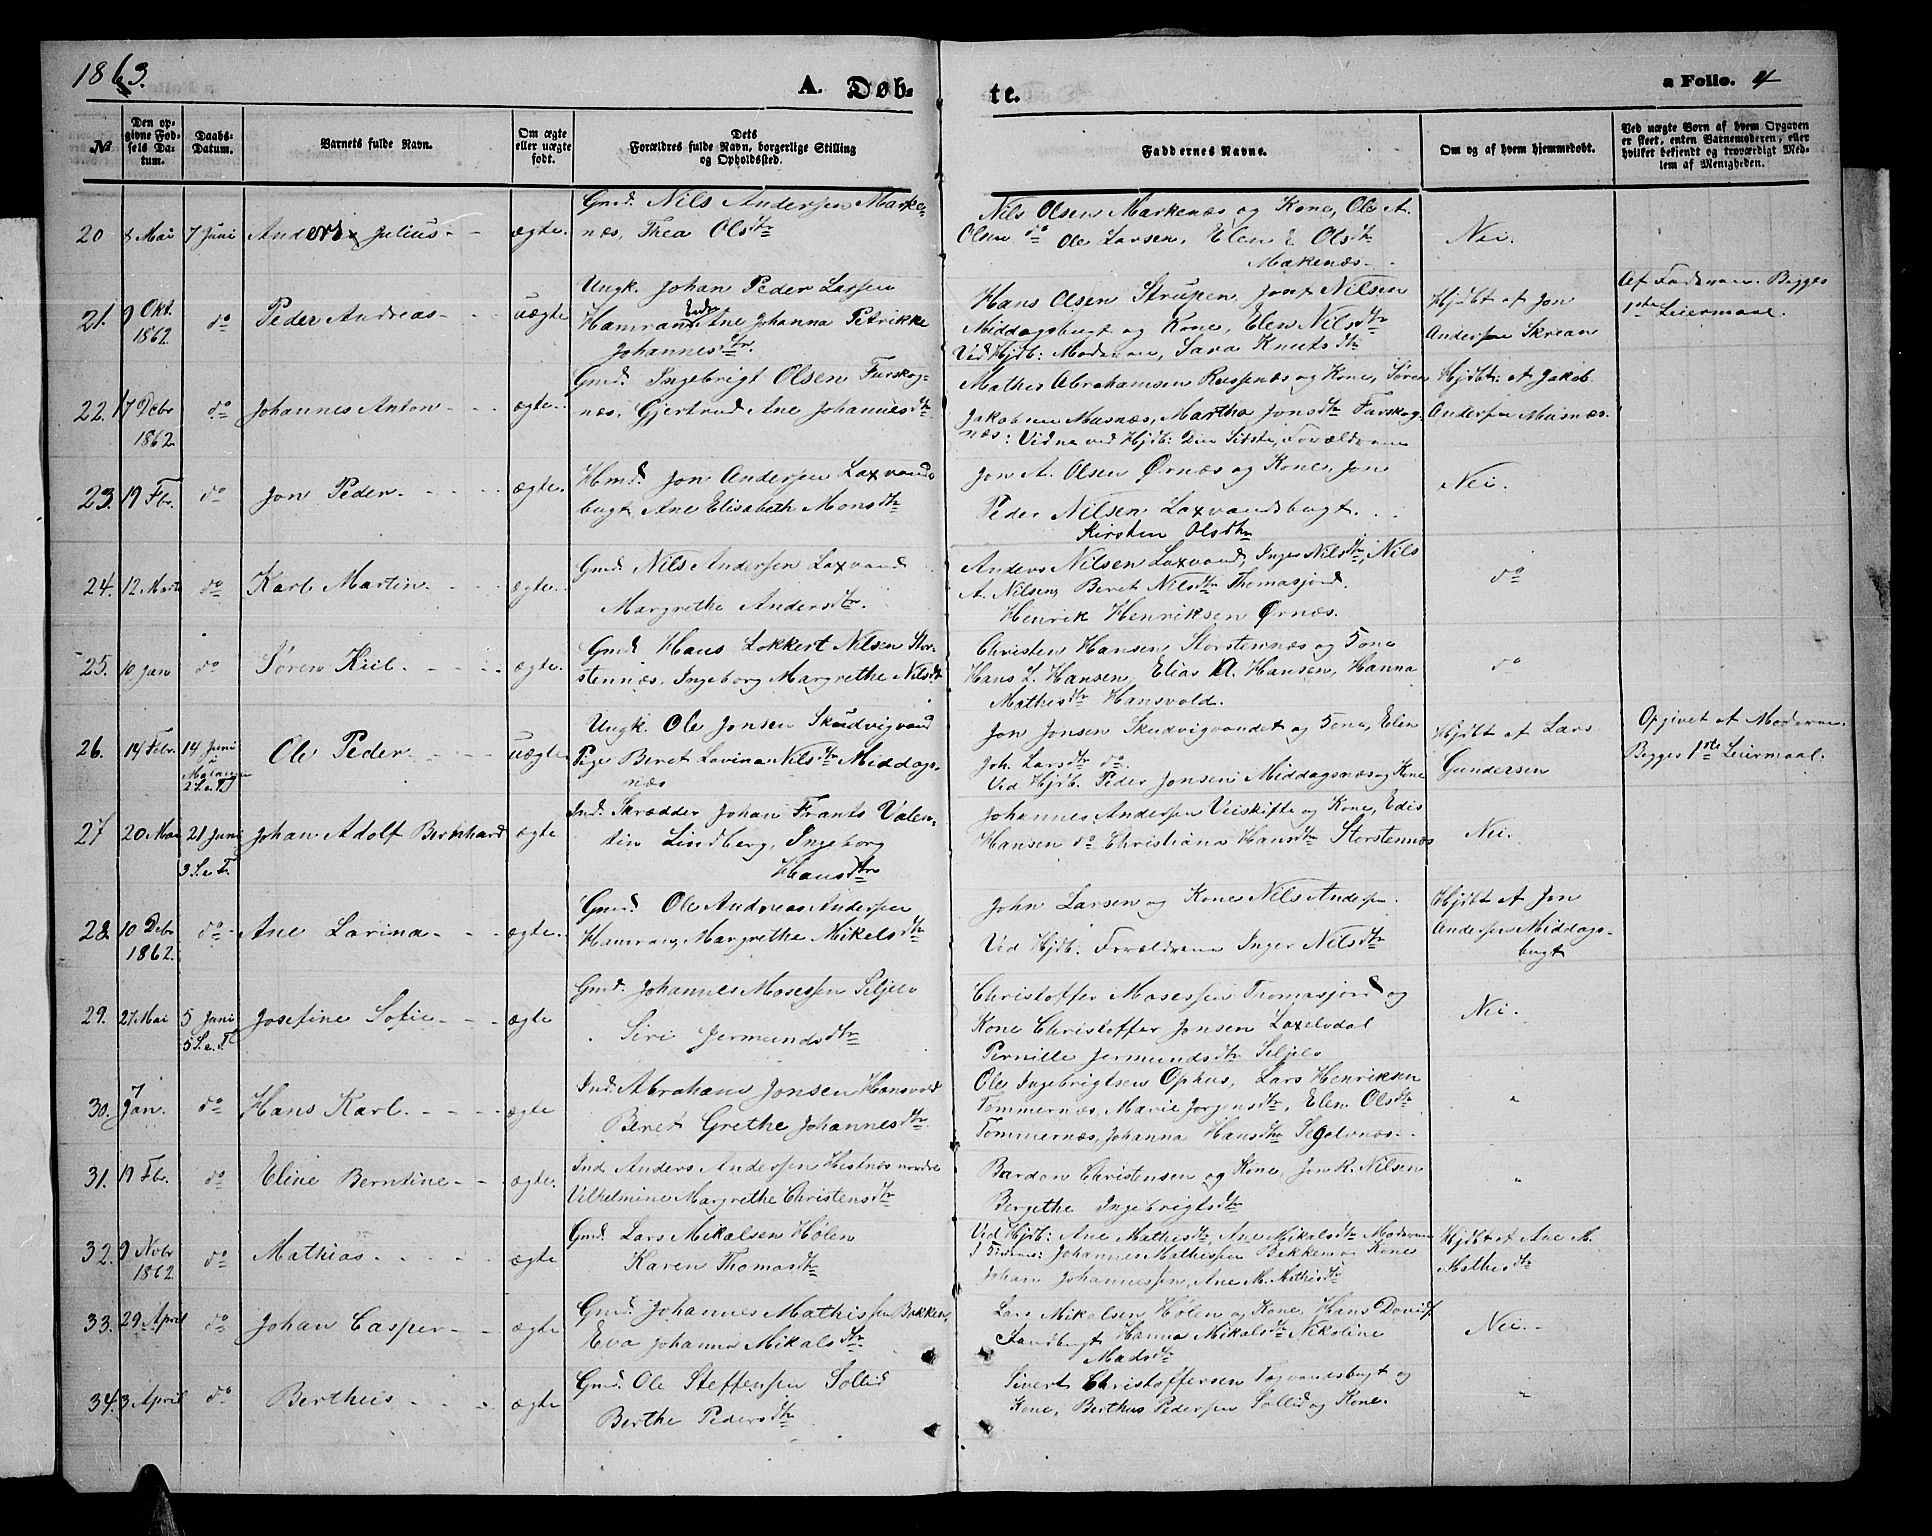 1863.
A. Døb-
te.
a Folio. 4
No
Den opgivne Fødsels Datum.
Daabs-Datum.
Barnets fulde Navn.
Om ægte eller uægte født.
Dets Forældres fulde Navn, borgerlige Stilling og Opholdssted.
Faddernes Navne.
Om og af hvem hjemmedøbt.
Ved uægte Børn af hvem Opgaven er skeet, enten Barnemoderen, eller hvilket bekjendt og troværdigt Medlem af Menigheden.
20 8 Mai 7 Juni Anders Julius - - ægte
Gmd. Nils Andersen Marke-
næs, Thea Olsdtr
Nils Olsen Markenæs og Kone, Ole A.
Olsen do Ole Larsen, Elen E. Olsdtr
Makenæs.
Nei.
21. 9 Okt. 1862 do Peder Andreas - - - uægte
Ungk. Johan Peder Lassen
Hamran Ane Johanna Petrikke
Johannesdtr.
Hans Olsen Strupen, Joh Nilsen
Middagsbugt og Kone, Elen Nilsdtr
Ved Hjdb: Moderen, Sara Knutsdtr
Hjdbt af Jon
Andersen Skrean
Af Faderen. Begges
1ste Leiermaal.
22. 17 Debr 1862 do Johannes Anton - - - ægte
Gmd. Ingebrigt Olsen Furskog-
næs, Gjertrud Ane Johannesdtr
Mathis Abrahamsen Russenæs og Kone, Søren
Jakobsen Musnæs, Martha Jonsdtr Furskog-
næs: Vidne ved Hjdb: Den Sidste, Forældrene
Hjdbt af Jakob
Andersen Musnæs.
23. 19 Fbr. do Jon Peder - - - ægte.
Hmd. Jon Andersen Laxvands
bugt, Ane Elisabeth Monsdtr
Jon A. Olsen Ørnæs og Kone, Jon
Peder Nilsen Laxvandsbugt.
Kirsten Olsdtr
Nei.
24. 12 Marts do Karl Martin - - - ægte.
Gmd. Nils Andersen Laxvand
Margrethe Andersdtr.
Anders Nilsen Laxvand, Inger Nilsdtr, Nils
A. Nilsen, Beret Nilsdtr Thomasjord.
Henrik Henriksen Ørnæs.
do
25. 10 Jan do Søren Kiil - - - ægte.
Gmd. Hans Lokkert Nilsen Stor-
stennæs, Ingeborg Margrethe Nilsdtr
Christen Hansen Storstennæs og Kone
Hans L. Hansen, Elias A. Hansen, Hanna
Mathisdtr Hansvold.
do
26. 14 Febr. 14 Juni i Malangen 2 S. e. T. Ole Peder - - - uægte
Ungk. Ole Jonsen Skudvigvand
Pige Beret Lovina Nilsdtr Middags-
næs
Jon Jonsen Skudvigvandet og Kone, Elen
Joh. Larsdtr do.
Ved Hjdb. Peder Jonsen Middagsnæs og Kone
Hjdbt af Lars
Gundersen
Opgivet af Moderen.
Begges 1ste Leiermaal.
27 20 Mai 21 Juni 3 S. e. T. Johan Adolf Bernhard ægte
Ind. Skrædder Johan Frants Valen-
din Lindberg, Ingeborg
Hansdtr
Johannes Andersen Veiskifte og Kone, Edis
Hansen do Christiana Hansdtr Storstennæs
Nei.
28. 10 Debr 1862. do Ane Lavina - - - ægte.
Gmd. Ole Andreas Andersen
Hamran, Margrethe Mikelsdtr
John Larsen og Kone Nils Andersen.
Ved Hjdb. Forældrene Inger Nilsdtr
Hjdbt af Jon
Andersen Middags-
bugt
29. 27 Mai 5 Juni 5 S. e. T. Josefine Sofie - - - ægte
Gmd. Johannes Mosessen Seljelv
Siri Jermundsdtr
Christoffer Mosessen Tromasjord og
Kone Christoffer Jonsen Laxelvdal
Pernille Jermundsdtr Seljelv
Nei.
30. 7 Jan. do Hans Karl - - - - ægte
Ind. Abraham Jonsen Hansvold
Beret Grethe Johannesdtr.
Ole Ingebrigtsen Ophus, Lars Henriksen
Tommernæs, Marie Jørgensdtr, Elen Olsdtr
Tommernæs, Johanna Hansdtr Segelvnæs.
"
31. 19 Fbr. do Eline Berntine - - ægte.
Ind Anders Andersen Hestnæs nordre
Vilhelmine Margrethe Christensdtr
Bardon Christensen og Kone, Jon R. Nilsen
Bergithe Ingebrigtsdtr
"
32. 9 Nobr 1862. do Mathias - - - - ægte
Gmd. Lars Mikalsen Hølen
Karen Thomasdtr
Ved Hjdb: Ane Mathisdtr, Ane Mikalsdtr Moderen
Johannes Mathissen Bakken og Kone
Johan Johannessen, Ane M. Mathisdtr
Hjdbt af Ane M.
Mathisdtr
33. 29 April do Johan Casper - - ægte
Gmd. Johannes Mathissen Bakken,
Eva Johanna Mikalsdtr.
Lars Mikalsen Hølen og Kone, Hans David
Sandbugt Hanna Mikalsdtr Nikoline
Madsdtr
Nei. -
34. 3 April do Bertheus - - - ægte
Gmd. Ole Steffensen Sollid
Berthe Pedersdtr
Sivert Christoffersen Tagvandsbugt og
Kone, Berthus Pedersen Sollid og Kone.
"